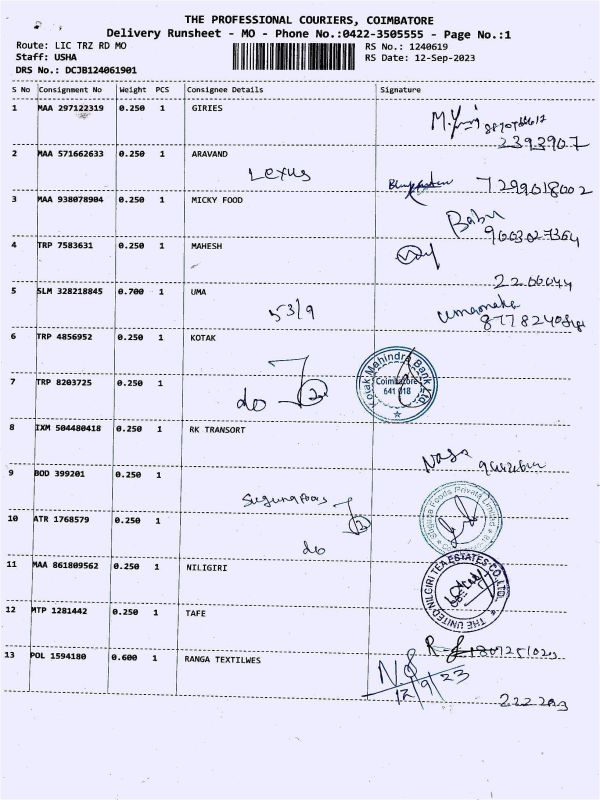 THE PROFESSIONAL COURIERS, COIMBATORE
Delivery Runsheet - MO - Phone No.:0422-3505555 - Page No.:1
Route: LIC TRZ RD MO RS No.: 1240619
Staff: USHA RS Date: 12-Sep-2023
DRS No.: DCJB124061901
S No Consignment No Weight PCS Consignee Details Signature
1 MAA 297122319 0.250 1 GIRIES
2393907
2 MAA 571662633 0.250 1 ARAVAND
Lexus 7299018002
3 MAA 938078904 0.250 1 MICKY FOOD
Babu
9003027364
4 TRP 7583631 0.250 1 MAHESH
5 SLM 328218845 0.700 1 UMA
53/9
6 TRP 4856952 0.250 1 KOTAK
Kotak Mahindra Bank Ltd.
Coimbatore
641 018
7 TRP 8203725 0.250 1
do
8 IXM 504480418 0.250 1 RK TRANSORT
9 BOD 399201 0.250 1
Suguna Foods
Suguna Foods Private Limited
10 ATR 1768579 0.250 1
do
11 MAA 861809562 0.250 1 NILIGIRI
THE UNITED NILGIRI TEA ESTATES CO. LTD.
12 MTP 1281442 0.250 1 TAFE
13 POL 1594180 0.600 1 RANGA TEXTILWES
12/9/23